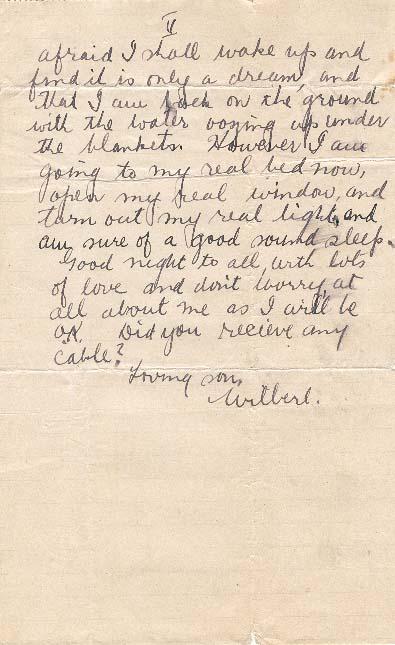 V
afraid I shall wake up and
find it is only a dream, and
that I am back on the ground
with the water oozing up under
the blankets. However I am
going to my real bed now,
open my real window, and
turn out my real light, and
am sure of a good sound sleep.
Good night to all, with lots
of love and don't worry at
all about me as I will be
O.K. Did you recieve any
cable?
Loving son,
Wilbert.